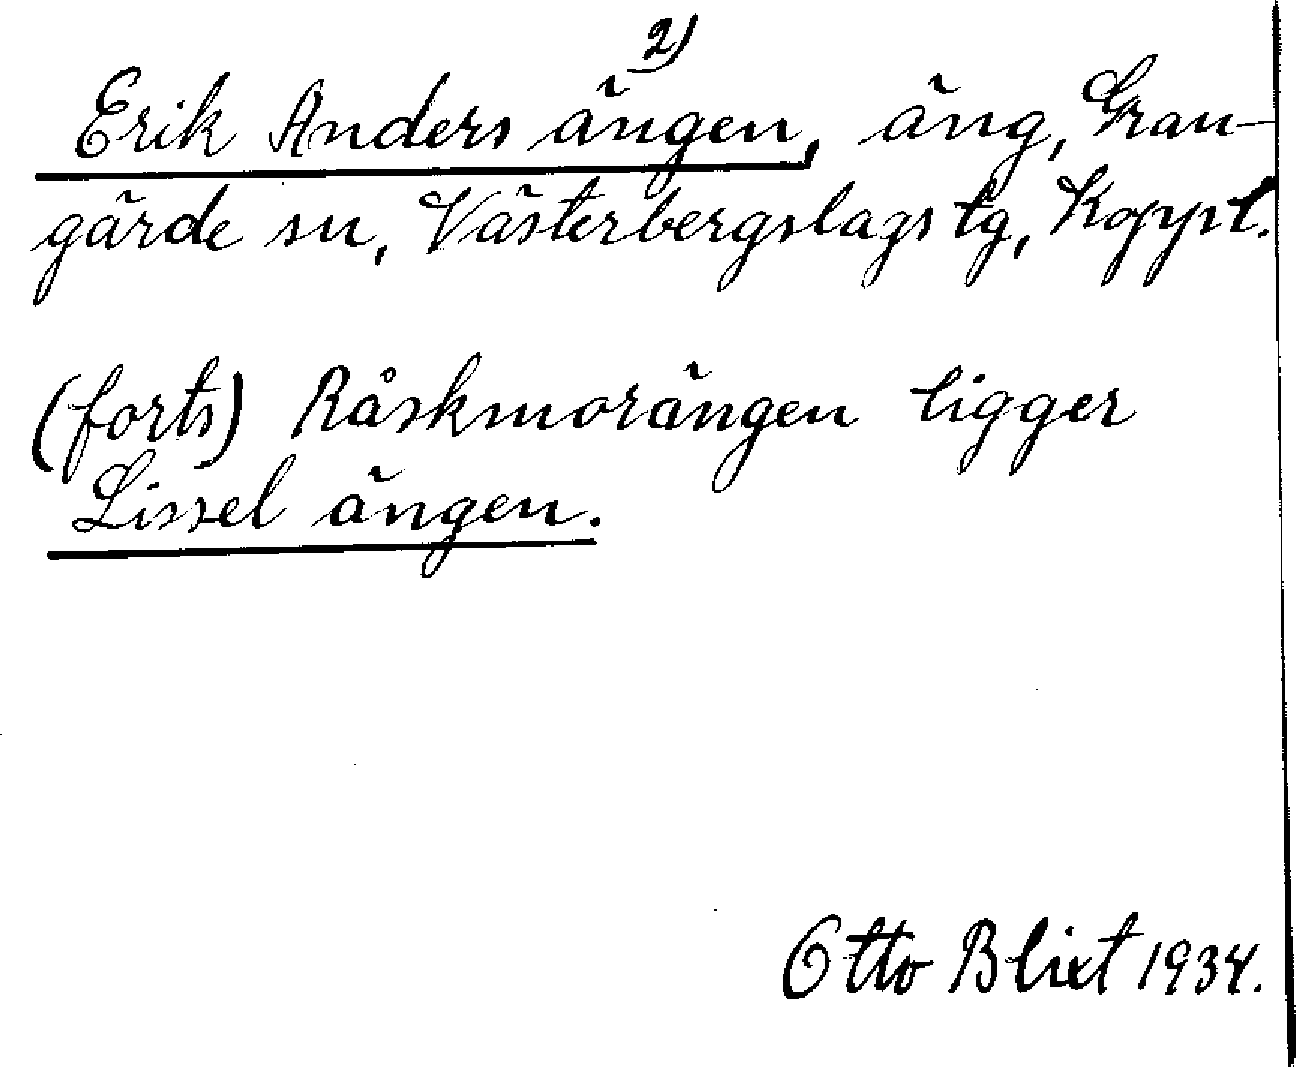 2)
Erik Anders ängen, äng, Gran-
gärde sn, Västerbergslags tg, Koppl.
(forts) Råskmorängen ligger
Lissel ängen.
Otto Blixt 1934.